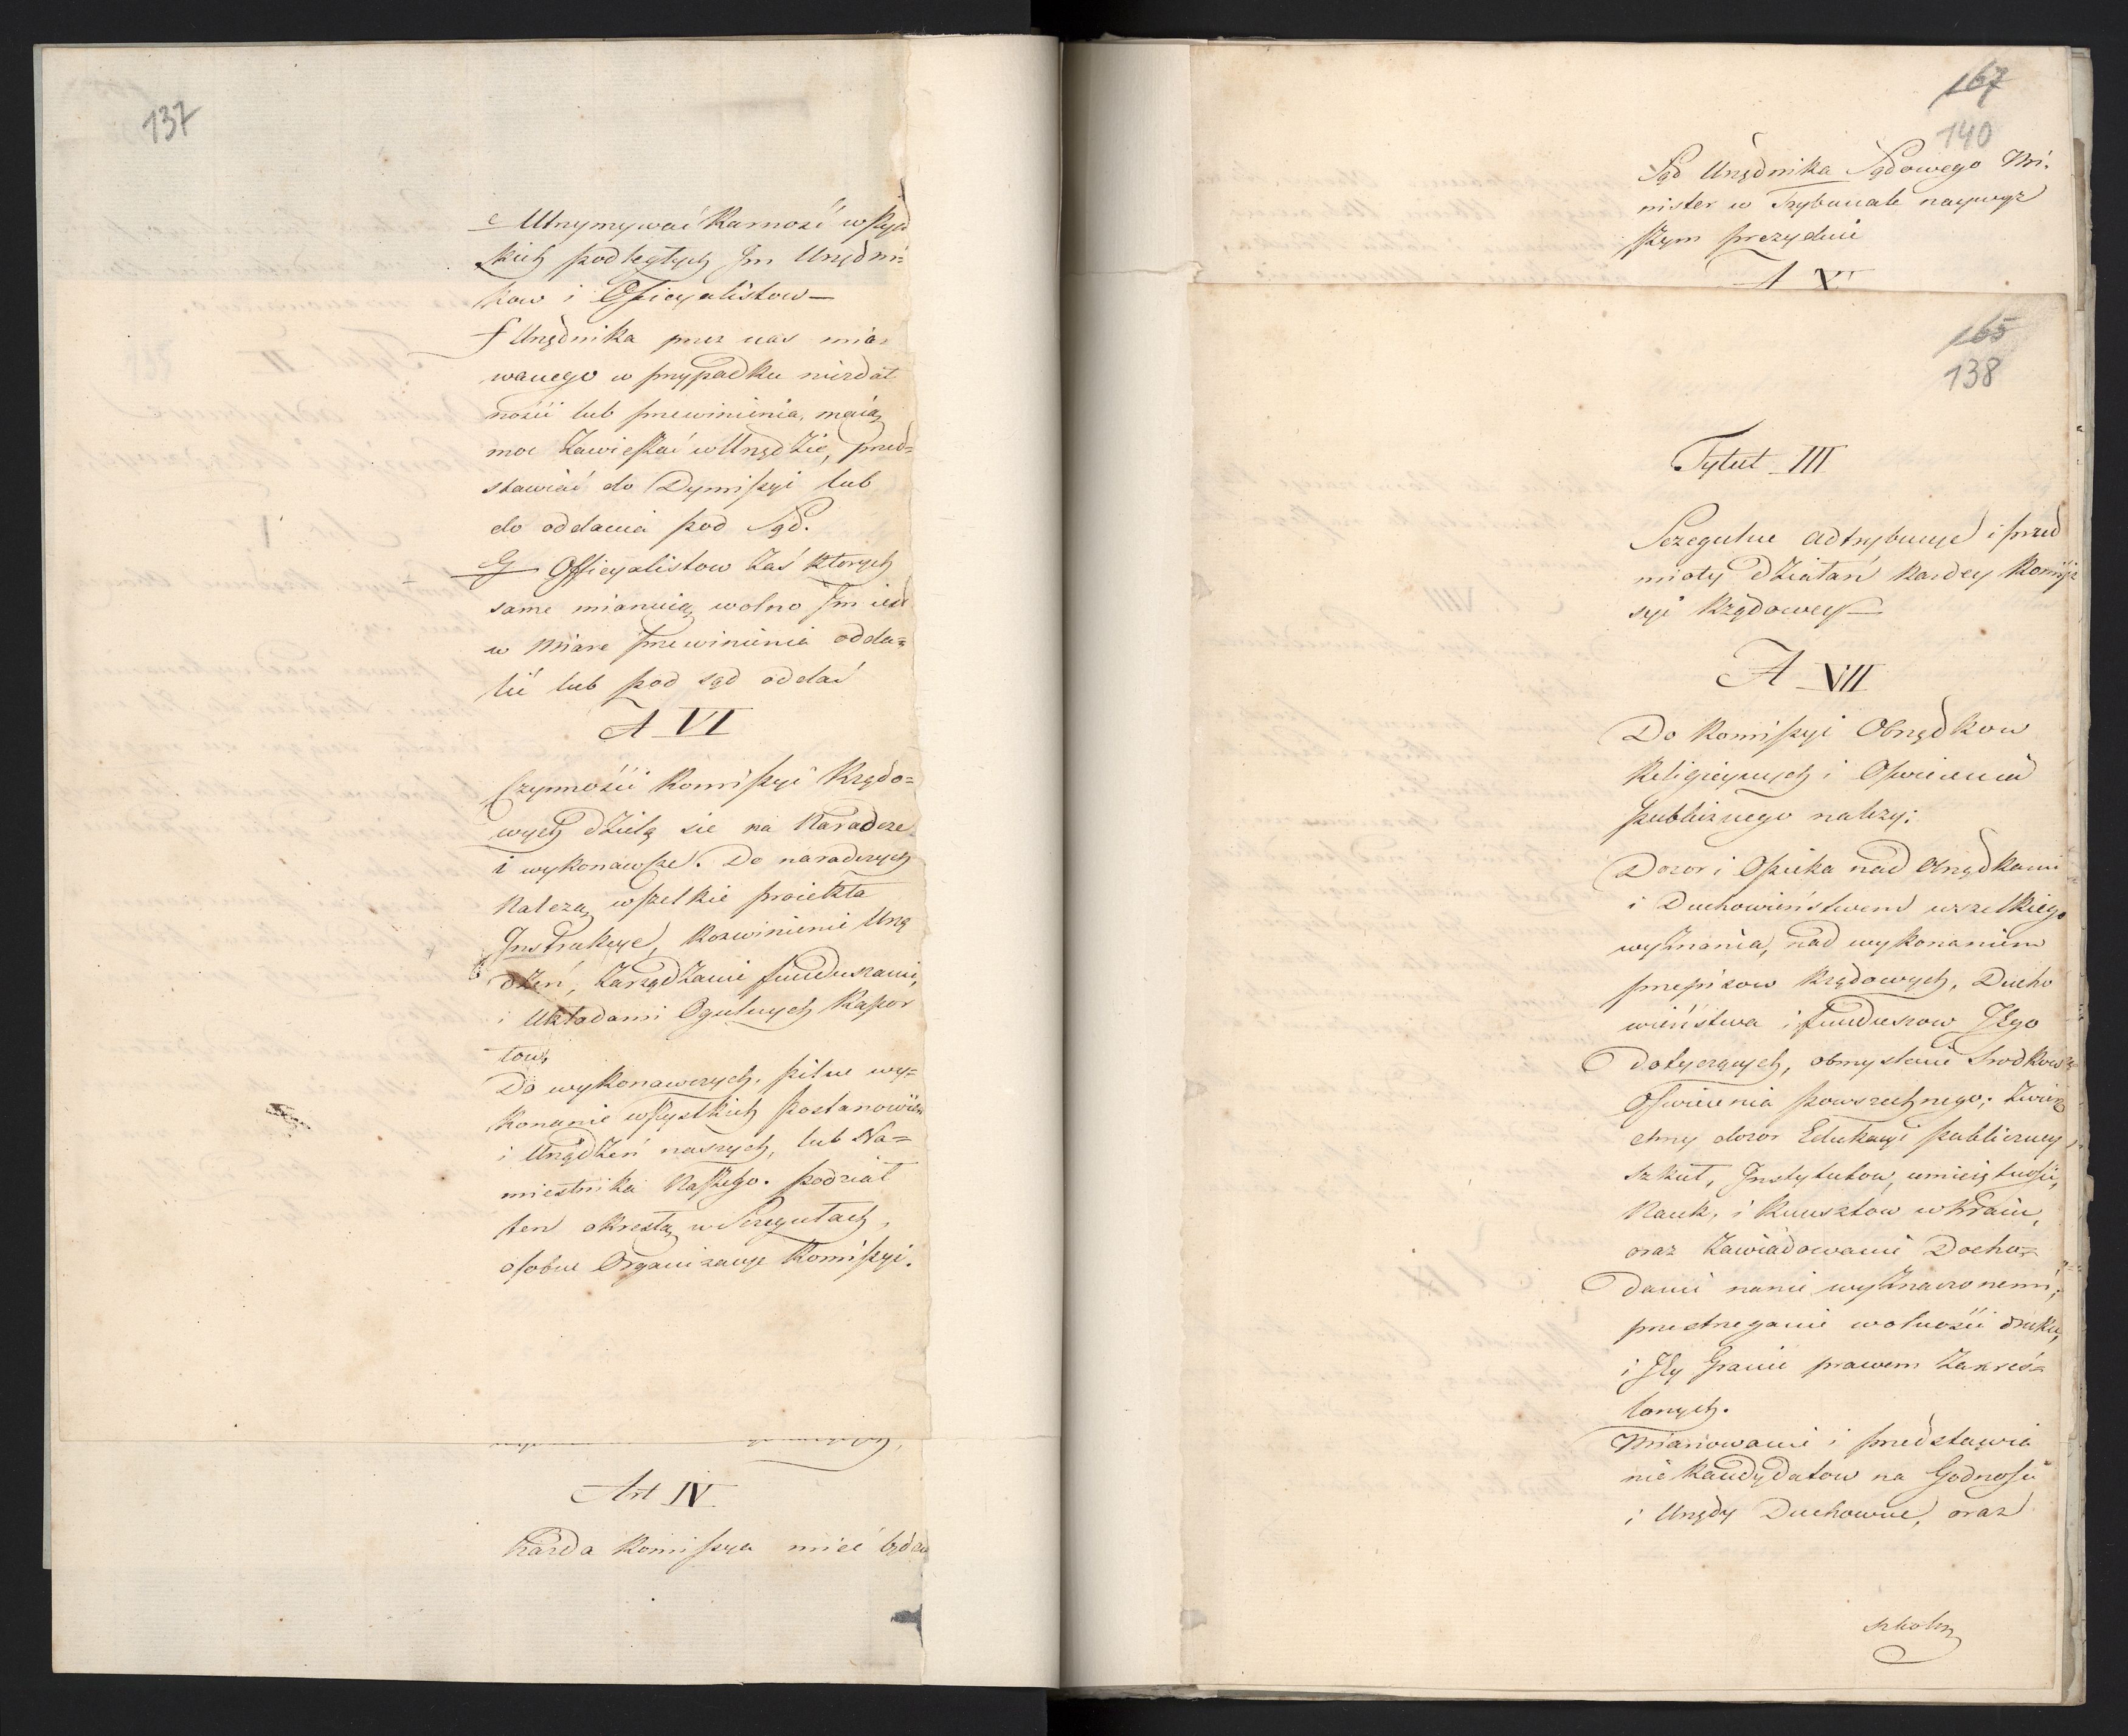 137
e Utrzymywać karność wszyst
kich podległych Im Urzędni=
kow i Officyalistow—
f Urzędnika przez nas miano
wanego w przypadku niezdat
ności lub przewinienia, maią
moc Zawieszać w Urzędzie, przed=
stawiać do Dymissyi lub
do oddania pod Sąd.
G Officyalistow Zaś ktorych
same mianuią wolno Im iest
w Miarę przewinienia odda=
lić lub pod sąd oddać
A VI
Czynności Kommissyi Rządo=
wych dzielą sie na Naradcze
i wykonawcze. Do naradczych
Należą wszelkie proiekta
Instrukcye, Rozwinienie Urzą
dzeń, Zarządzanie funduszami,
i Układami Ogulnych Rapor
tow,
Do wykonawczych, pilne wy=
konanie wszystkich postanowień
i Urządzeń naszych, lub Na=
miestnika Naszego. podział
ten okreslą w Szczegułach,
osobne Organizacye Kommissyi.
Art IV
Każda Kommissya mieć będzie
167
140
Sąd Urzędnika Sądowego Mi.
nister w Trybunale naywyż
szym prezyduie
A X
165
138
Tytuł III
Szczegulne adtrybucye i przed
mioty działań każdey Kommis
syi Rządowey—
A VII
Do Kommissyi Obrządkow
Religiynych i Oswiecenia
publicznego należy:
Dozor i Opieka nad Obrządkami
i Duchowieństwem wszelkiego
wyznania, nad wykonaniem
przepisow Rządowych, Ducho
wieństwa i funduszow Jego
dotyczących, obmyslenie Srodkow
Oswiecenia powszechnego; Zwierz
chny dozor Edukacyi publiczney
szkuł, Instytutow, umieiętności,
Nauk, i Kunsztow w Kraiu,
oraz Zawiadowanie Docho=
dami nanie wyznaczonemi;
przestrzeganie wolności druku,
i Jey Granic prawem Zakreś=
lonych.
Mianowanie i przedstawia
nie Kandydatow na Godności
i Urzędy Duchowne, oraz
szkolne